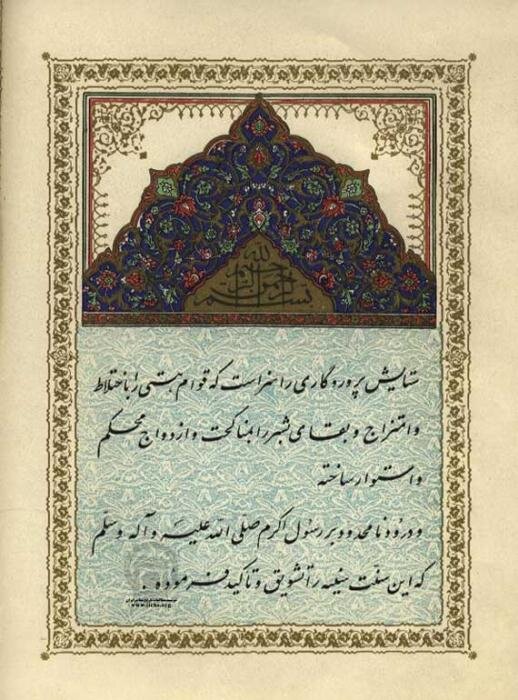 بسم الله الرحمن الرحیم
ستایش پروردگاری را سزاست که قوام هستی را باختلاط
و امتزاج و بقای بشر را بمناکحت و ازدواج محکم
و استوار ساخته
و درود نامحدود بر رسول اکرم صلی الله علیه و آله وسلم
که این سنت سنیه را تشویق و تاکید فرموده .
www.iichs.org